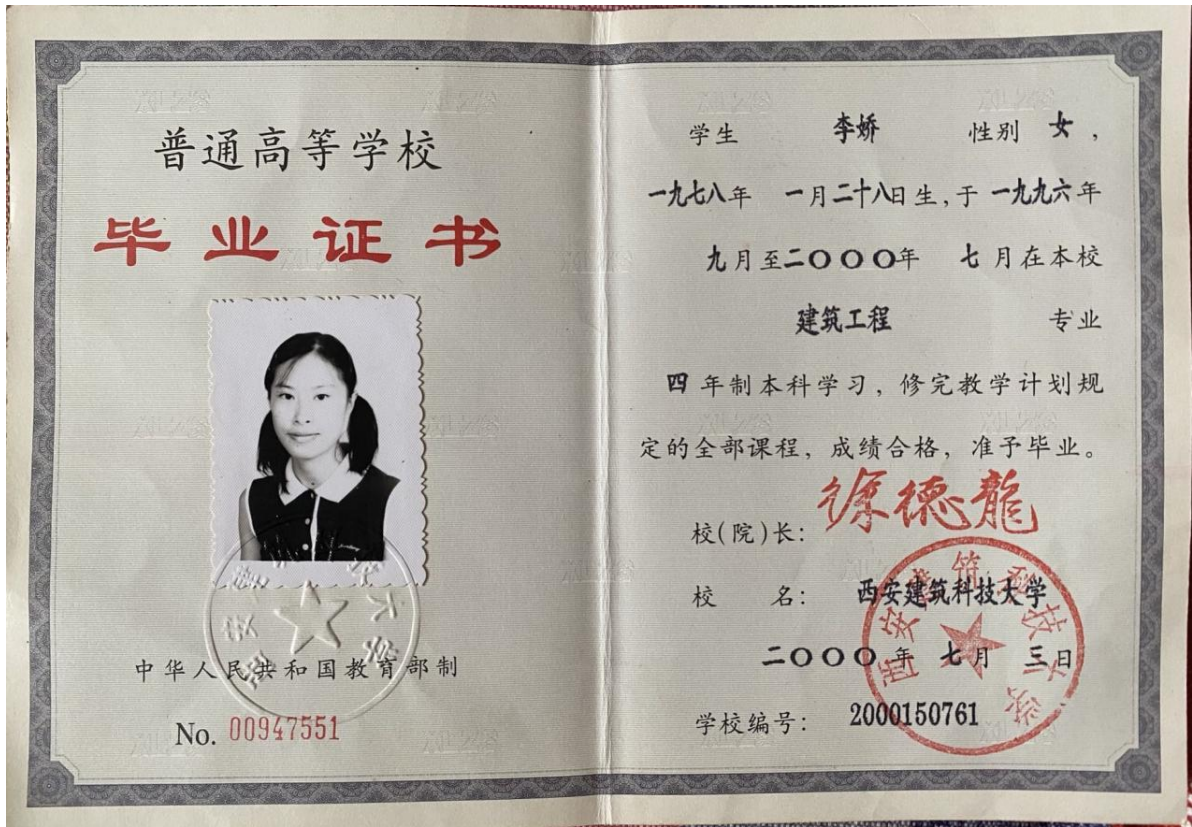 普通高等学校
毕业证书
中华人民共和国教育部制
No. 00947551
学生 李娇 性别 女，
一九七八年 一月二十八日生，于 一九九六年
九月至二〇〇〇年 七月在本校
建筑工程 专业
四年制本科学习，修完教学计划规
定的全部课程，成绩合格，准予毕业。
校(院)长：徐德龍
校 名：西安建筑科技大学
二〇〇〇年 七月 三日
学校编号：2000150761
西安建筑科技大学